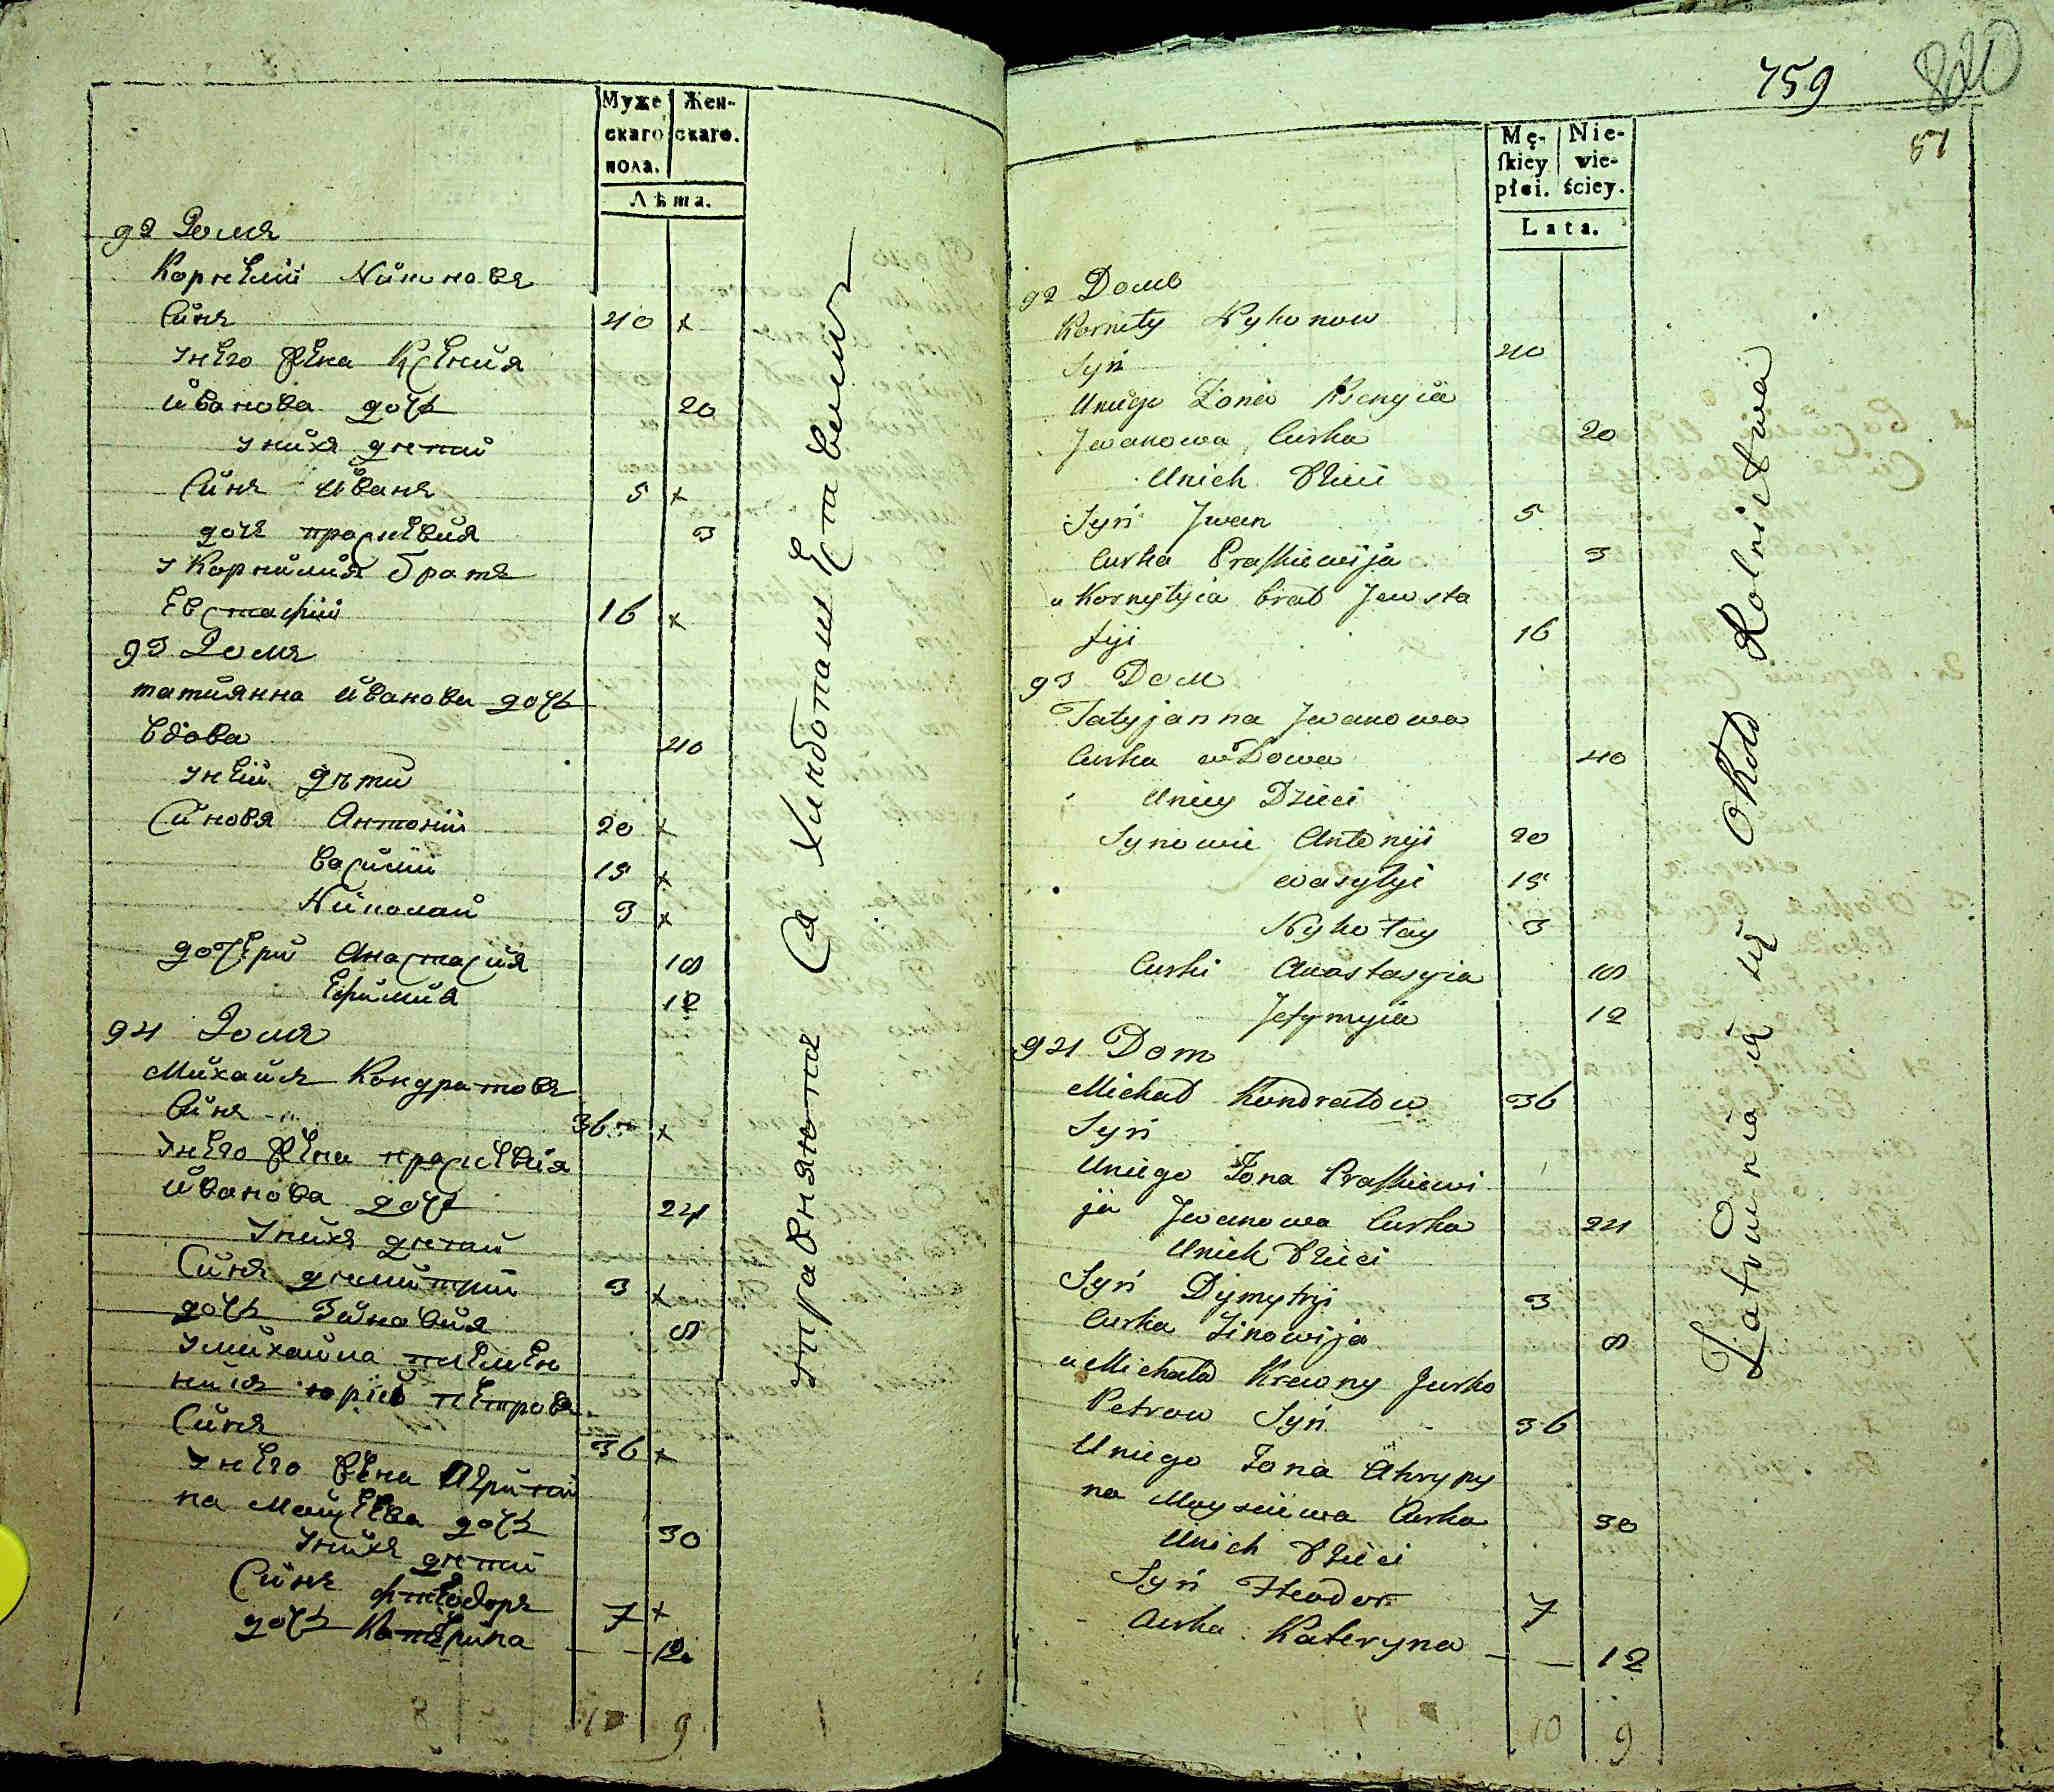 Муже
скаго
пола.
Жен-
скаго.
Лѣта.
92 Домъ
Корнелій Никоновъ
Синъ 40 х
Унего жена Ксения
Иванова дочь 20
Унихъ дѣти
Синъ Иванъ 5 х
дочь Праскевия 3
У Корнилия братъ
Евстафій 16 х
93 Домъ
татиянна Иванова дочь
вдова 40
Уней дѣти
Синовя Антоній 20 х
Василій 15 х
Николай 3 х
дочери Анастасия 18
Ефимия 12
94 Домъ
Михаилъ Кондратовъ
Синъ 36 х
Унего жена праскевія
Иванова дочь 24
Унихъ дѣти
Синъ димитрій 3 х
дочь Зиновия 8
Умихаила племен
никъ юрій петровъ
Синъ 36 х
Унего жена Агрипи
на Мойсеева дочь 30
Унихъ дѣти
Синъ фтеодоръ 7 х
дочь Катерина 12
10 9
упражняются Хлибопашеством
759
820
57
Mę-
skiey
płci.
Nie-
wie-
ściey.
Lata.
92 Домъ
Korniły Nykonow
Syn 40
Uniego Żona Ksenyia
Jwanowa Curka 20
Unich Dzieci
Syn Jwan 5
Curka Praskiewija 3
u Kornyłyia brat Jewsta
fiji 16
93 Dom
Tatyjanna Jwanowa
Curka wdowa 40
Uniey Dzieci
Synowie Antonyi 20
wasylyi 15
Nykołay 3
Curki Anastasyia 18
Jefymyia 12
94 Dom
Michał Kondratow 36
Syn
Uniego Żona Praskiewi
ja Jwanowa Curka 24
Unich Dzieci
Syn Dymytryi 3
Curka Zinowija 8
u Michała Krewny Jurko
Petrow Syn 36
Uniego Żona Ahrypy
na Moysiiewa Curka 30
Unich Dzieci
Syn Fteodor 7
Curka Kateryna 12
10 9
Zatrudniaią się Około Rolnictwa